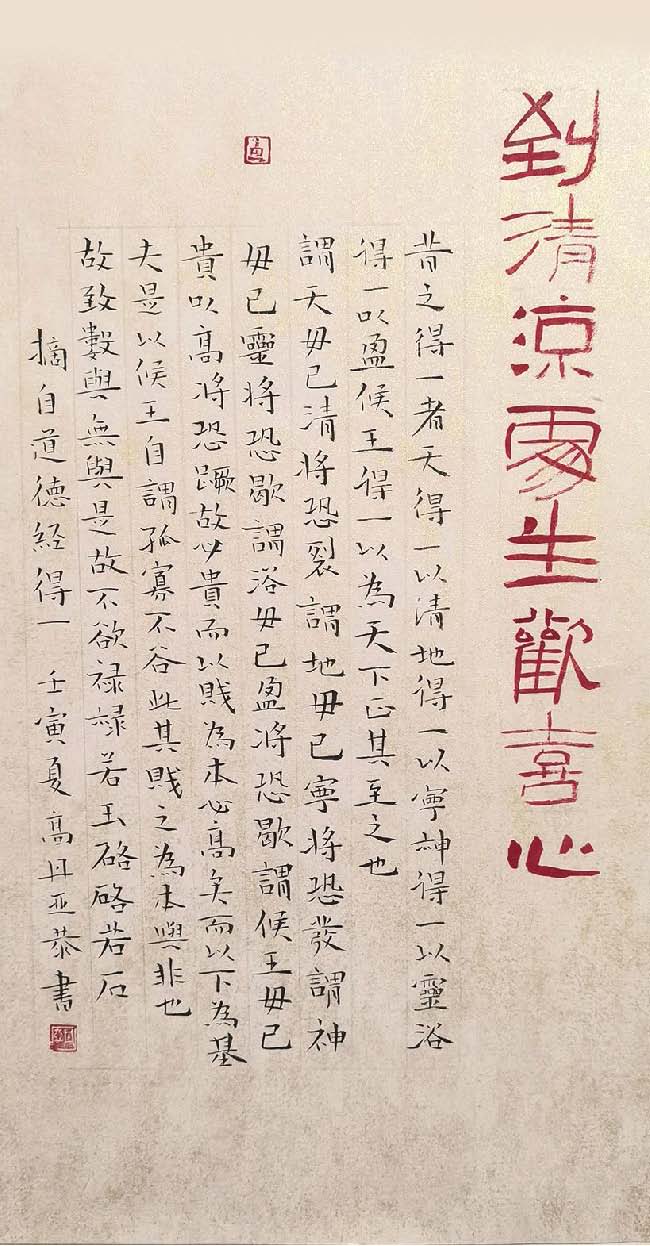 到清涼處生歡喜心
昔之得一者天得一以清地得一以寧神得一以靈浴
得一以盈侯王得一以為天下正其至之也
謂天毋已清將恐裂謂地毋已寧將恐發謂神
毋已靈將恐歇謂浴毋已盈將恐歇謂侯王毋已
貴以高將恐蹶故必貴而以賤為本必高矣而以下為基
夫是以侯王自謂孤寡不谷此其賤之為本與非也
故致數與無與是故不欲祿祿若玉硌硌若石
摘自道德經得一 壬寅夏高丹亚恭書